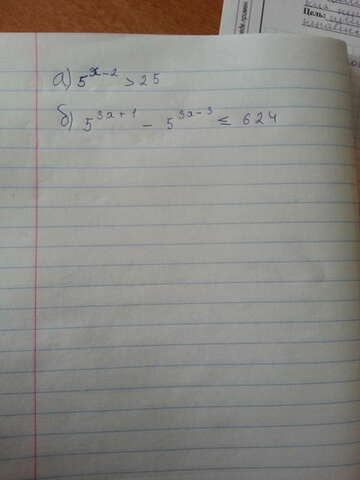 Цель:
а) 5^{x-2} > 25
б) 5^{3x+1} - 5^{3x-3} ≤ 624